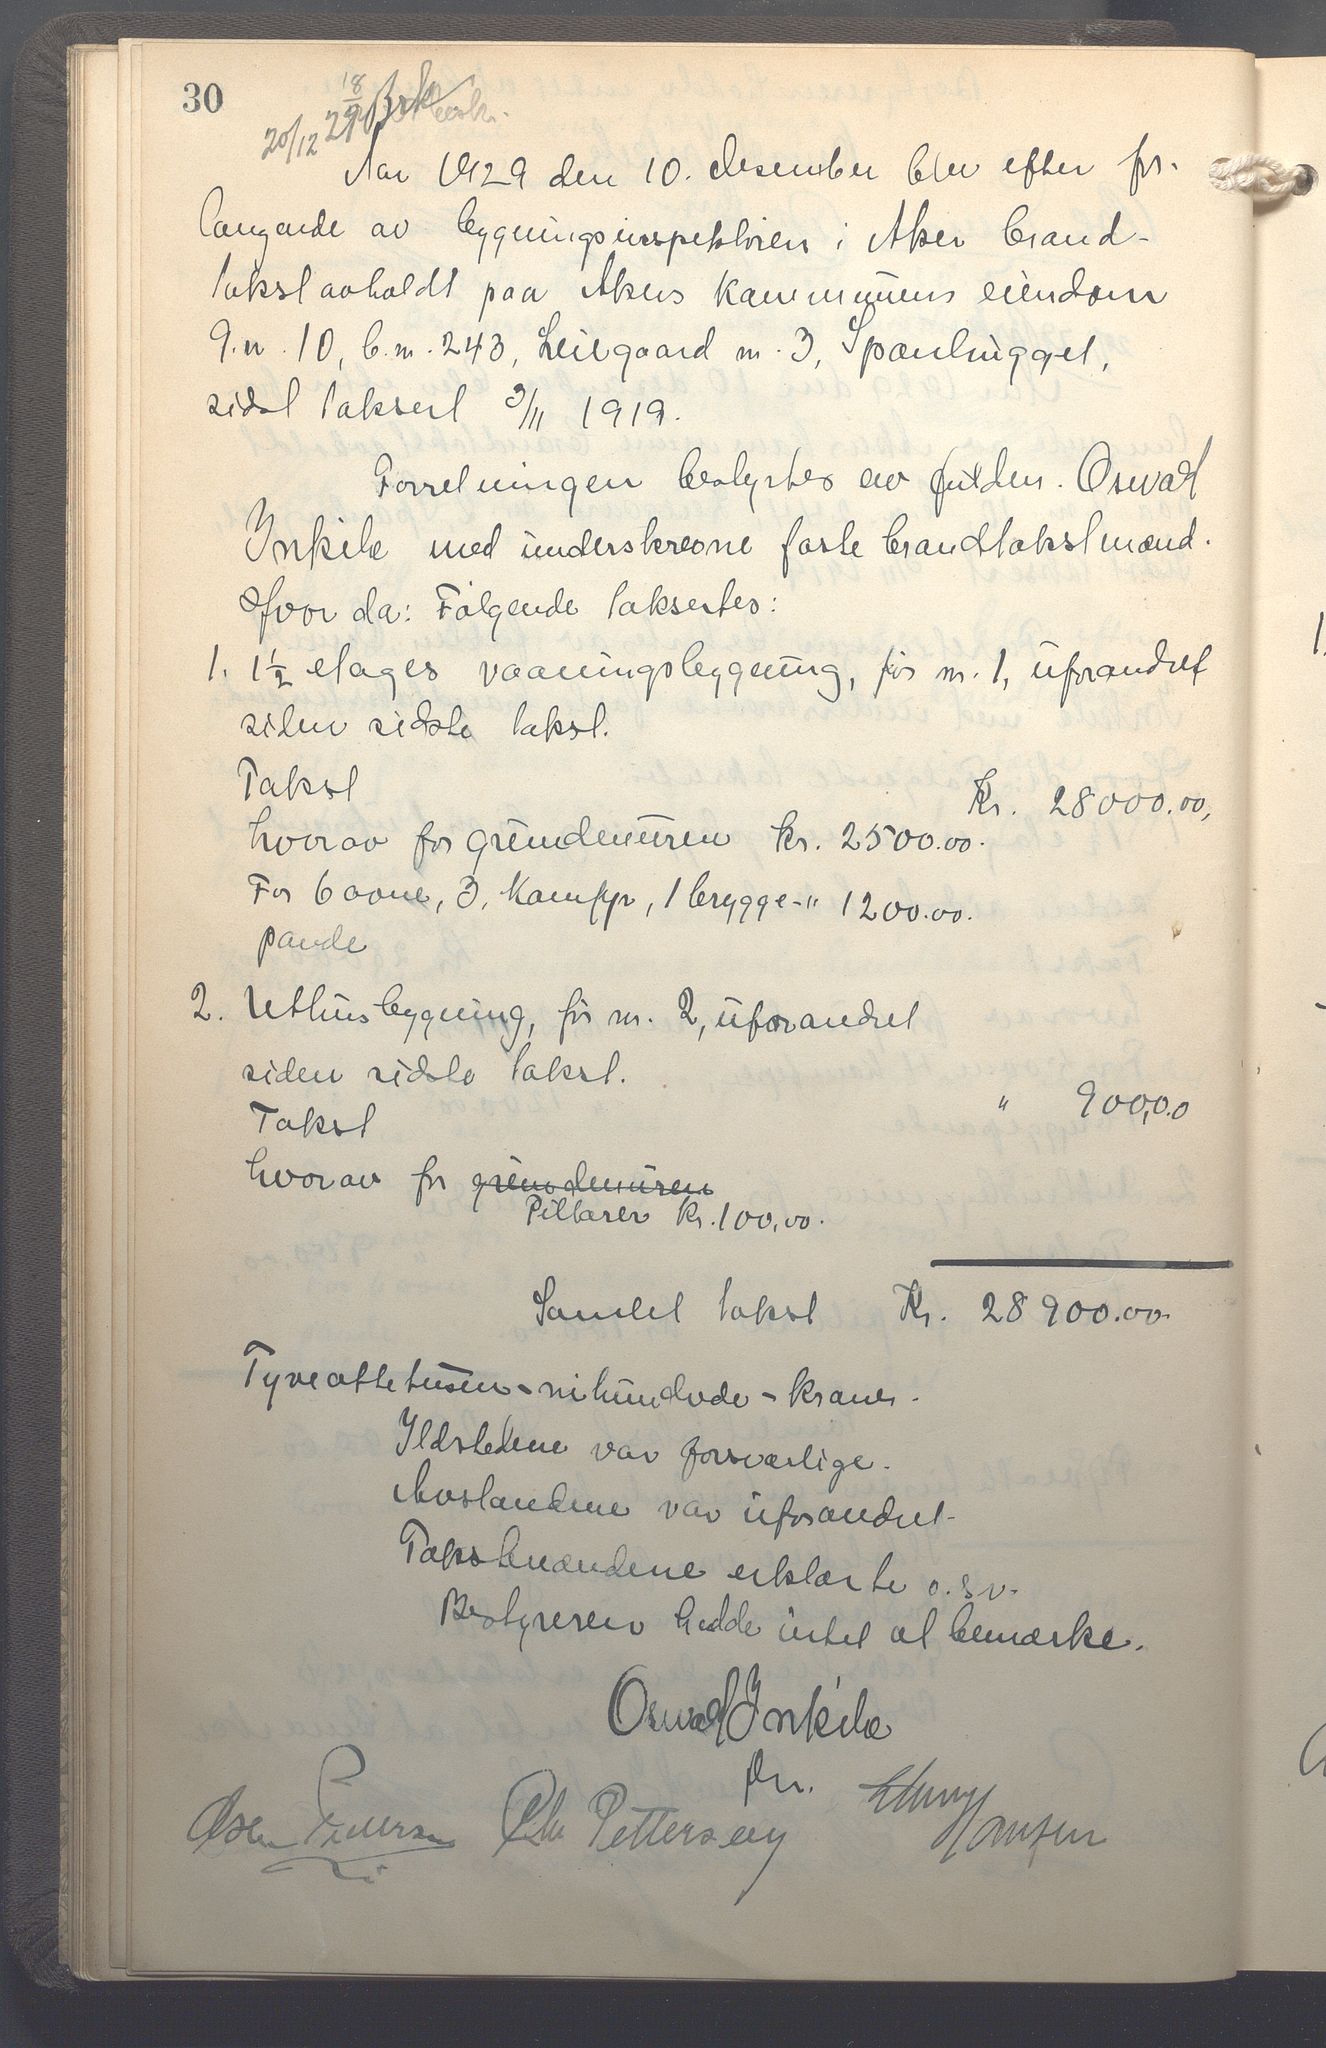 30
20/12 29
Aar 1929 den 10. desember blev efter for-
langende av bygningsinspektören i Aker brand-
takst avholdt paa Akers kommunens eiendom
g.nr. 10, b.nr. 243, Leiegaard nr. 3, Spanhugget,
sidst taksert 3/11 1919.
Forretningen bestyrtes av fuldm. Oswald
Inkila med underskrevne faste brandtakstmænd.
Hvor da: Følgende taksertes:
1. 1½ etages vaaningsbygning, før nr. 1, uforandret
siden sidste takst.
Takst Kr. 28000.00,
hvorav for grundmuren kr. 2500.00.
For 6 ovne, 3 komfyr, 1 brygge- " 1200.00.
pande
2. Uthusbygning, før nr. 2, uforandret
siden sidste takst.
Takst " 900,00
hvorav for grundmuren
Pillarer kr. 100.00.
Samlet takst Kr. 28900.00.
Tyveottetusen - nihundrede - kroner.
Ildstedene var forsvarlige.
Avstandene var uforandret.
Takstmændene erklærte o.s.v.
Bestyreren hadde intet at bemærke.
Oswald Inkila
fm.
Pettersen Chr Pettersen Hansen